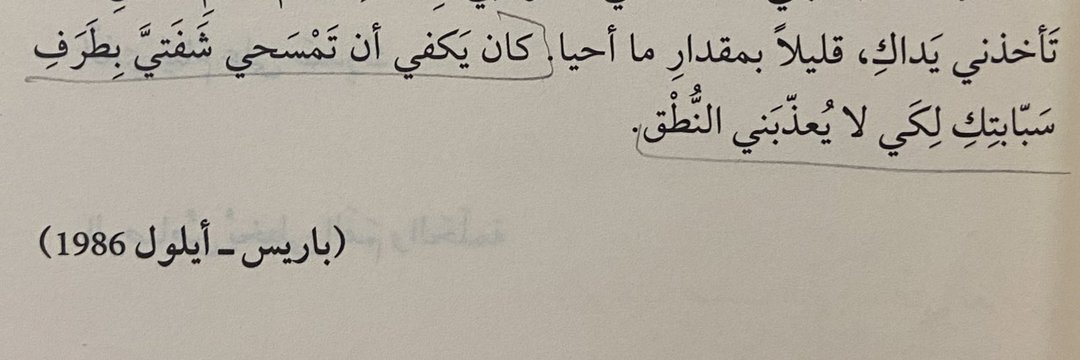 تَأخذني يَداكِ، قليلاً بمقدارِ ما أحيا. كان يَكفي أن تَمْسَحي شَفَتيَّ بِطَرَفِ
سَبّابتِكِ لِكَي لا يُعذّبَني النُّطْق.
(باريس ـ أيلول 1986)